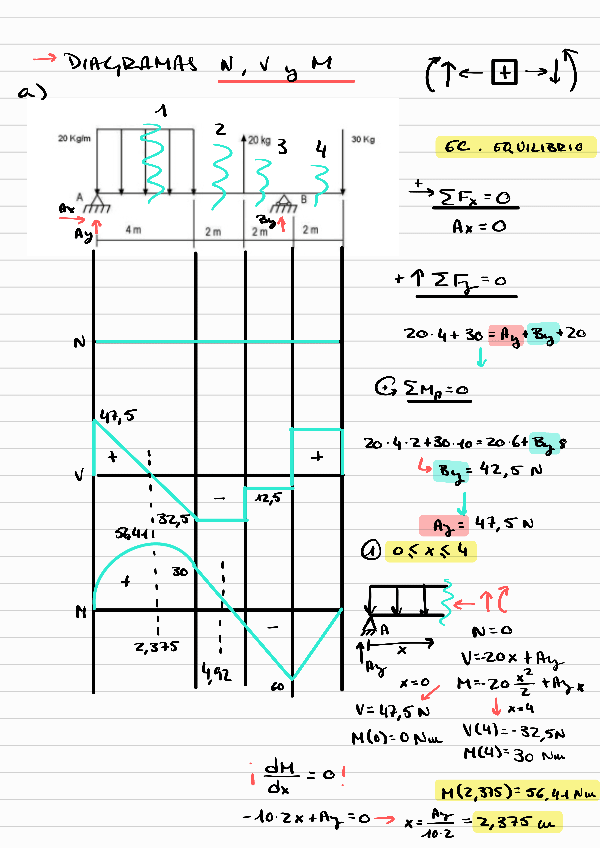 → DIAGRAMAS N, V y M
(↑← + →↓)
a)
1
2
3
4
20 Kg/m
20 kg
30 Kg
A
B
Ax
Ay
By
4 m
2 m
2 m
2 m
EC. EQUILIBRIO
+→ ΣFx = 0
Ax = 0
+↑ ΣFy = 0
20·4+30 = Ay + By + 20
ΣMA = 0
20·4·2+30·10 = 20·6 + By 8
By = 42,5 N
Ay = 47,5 N
N
47,5
+
V
-
+
32,5
12,5
56,41
30
+
N
-
2,375
4,92
60
① 0 ≤ x ≤ 4
A
x
Ay
N = 0
V = -20x + Ay
x=0
M = -20 x²/2 + Ay x
x=4
V = 47,5 N
V(4) = -32,5N
M(0) = 0 Nm
M(4) = 30 Nm
¡ dM/dx = 0 !
M(2,375) = 56,41 Nm
-10·2x + Ay = 0 → x = Ay/10·2 = 2,375 m